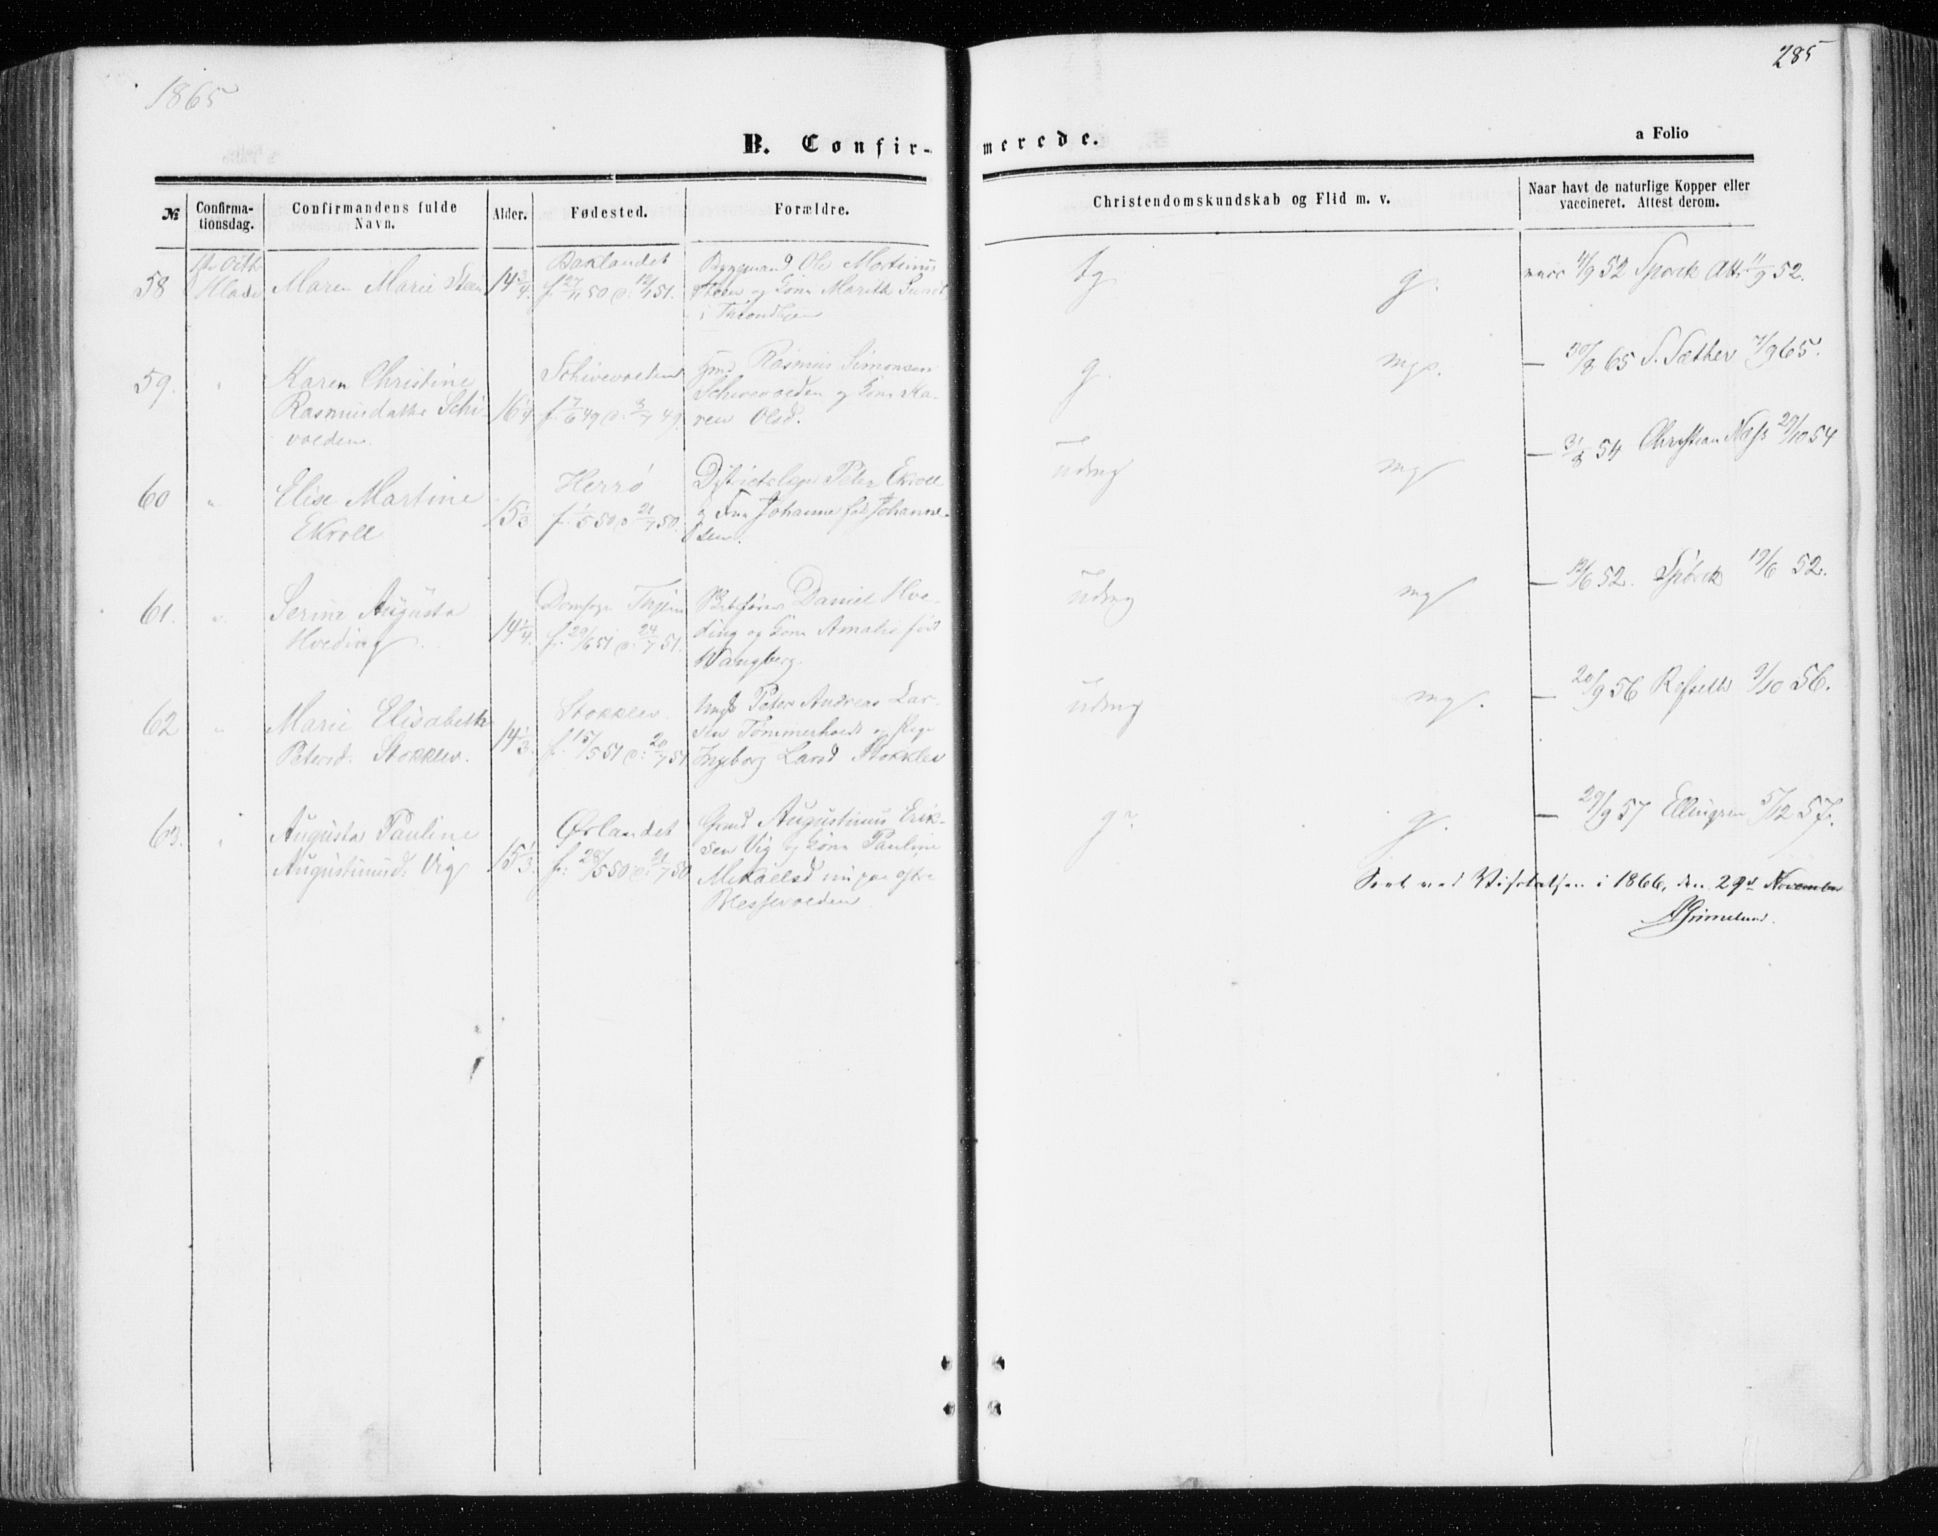 1865
285
B. Confir-
merede.
a Folio
№
Confirma-
tionsdag.
Confirmandens fulde
Navn.
Alder.
Fødested.
Forældre.
Christendomskundskab og Flid m. v.
Naar havt de naturlige Kopper eller
vaccineret. Attest derom.
58
1ste Octb
Hlade
Maren Marie Steen
14 3/4.
Baklandet
f. 27/11 50 d. 12/1 51.
Ole Mortinus
Steen og Kone Marith
i Throndhjem
tg
g.
vacc 4/9 52 Spörck Att. 11/9 52.
59.
"
Karen Christine
Rasmusdatter Schi-
voelden
16 1/4
Schivevolden
f. 7/6 49 d. 3/7 49
Gmd Rasmus Simonsen
Schivevolden og Kone Ka-
ren Olsd.
g.
mgs.
— 30/8 65 S. Sæther 7/9 65.
60
"
Elise Martine
Ekroll
15 1/3
Herrö
f. 1/5 50 d 21/7 50.
Districtslæge Peter Ekroll
og Fru Johanne föd Johanne-
sen.
udmg
mg
— 31/8 54 Christian Næss 29/10 54
61.
"
Serine Augusta
Hveding
14 1/4.
Domsogn Thjem
f. 20/6 51 d. 24/7 51.
Daniel Hve-
ding og Kone Amalie föd
Wangberg
udmg
mg
— 12/6 52. Spörck 19/6 52.
62
"
Marie Elisabeth
Petersd. Stokklev.
14 1/3.
Stokklev.
f. 15/5 51 d. 20/7 51
Ungk Peter Andreas Lar-
sen Tømmerholdt og Pige
Ingeborg Larsd Stokklev
udmg
mg.
— 20/9 56 Refseth 9/10 56.
63.
"
Augusta Pauline
Augustinusd. Vig
15 1/3.
Ørlandet
f: 28/5 50 d. 21/7 50
Gmd Augustinus Erik-
sen Vig og Kone Pauline
Mikaelsd nu paa
Blessevolden
g
g.
— 29/9 57 Ellingsen 5/12 57.
Seet ved Visitatsen i 1866, den 29de November
AGrimelund.